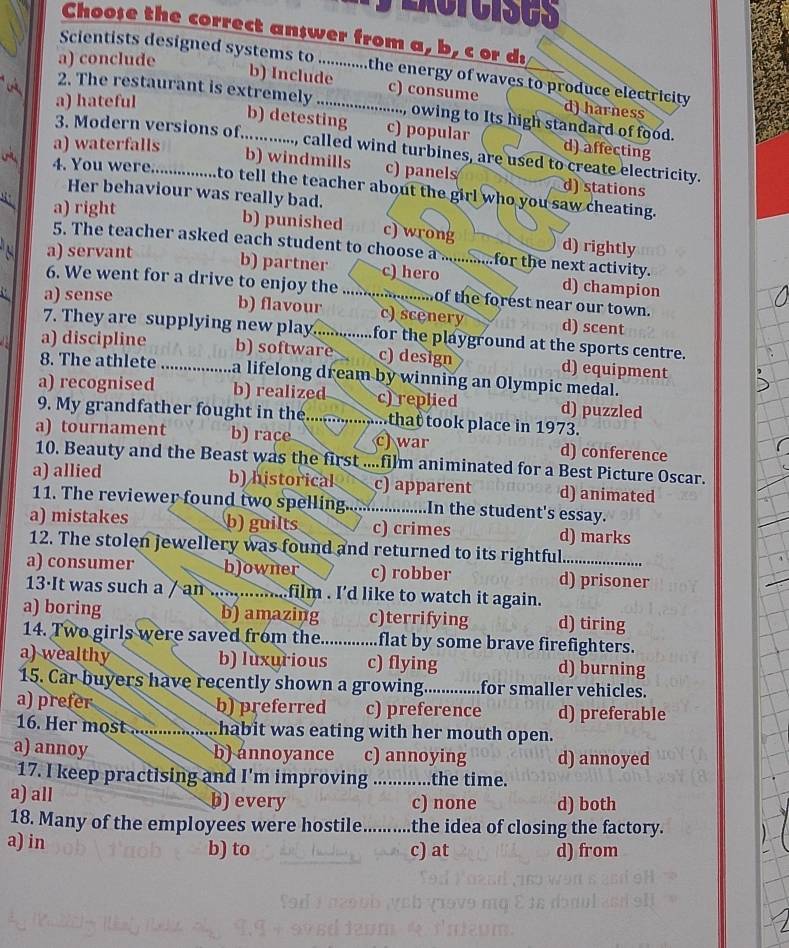 Exercises
Choose the correct answer from a, b, c or d:
Scientists designed systems to ............the energy of waves to produce electricity
a) conclude b) Include c) consume d) harness
2. The restaurant is extremely ...................., owing to Its high standard of food.
a) hateful b) detesting c) popular d) affecting
3. Modern versions of............, called wind turbines, are used to create electricity.
a) waterfalls b) windmills c) panels d) stations
4. You were...............to tell the teacher about the girl who you saw cheating.
Her behaviour was really bad.
a) right b) punished c) wrong d) rightly
5. The teacher asked each student to choose a ............for the next activity.
a) servant b) partner c) hero d) champion
6. We went for a drive to enjoy the .....................of the forest near our town.
a) sense b) flavour c) scenery d) scent
7. They are supplying new play..............for the playground at the sports centre.
a) discipline b) software c) design d) equipment
8. The athlete ................a lifelong dream by winning an Olympic medal.
a) recognised b) realized c) replied d) puzzled
9. My grandfather fought in the...................that took place in 1973.
a) tournament b) race c) war d) conference
10. Beauty and the Beast was the first ....film animinated for a Best Picture Oscar.
a) allied b) historical c) apparent d) animated
11. The reviewer found two spelling...................In the student's essay.
a) mistakes b) guilts c) crimes d) marks
12. The stolen jewellery was found and returned to its rightful...................
a) consumer b)owner c) robber d) prisoner
13·It was such a / an ..................film . I'd like to watch it again.
a) boring b) amazing c)terrifying d) tiring
14. Two girls were saved from the.............flat by some brave firefighters.
a) wealthy b) luxurious c) flying d) burning
15. Car buyers have recently shown a growing.............for smaller vehicles.
a) prefer b) preferred c) preference d) preferable
16. Her most ....................habit was eating with her mouth open.
a) annoy b) annoyance c) annoying d) annoyed
17. I keep practising and I'm improving .............the time.
a) all b) every c) none d) both
18. Many of the employees were hostile..........the idea of closing the factory.
a) in b) to c) at d) from
Mr Ahmed Al Rason